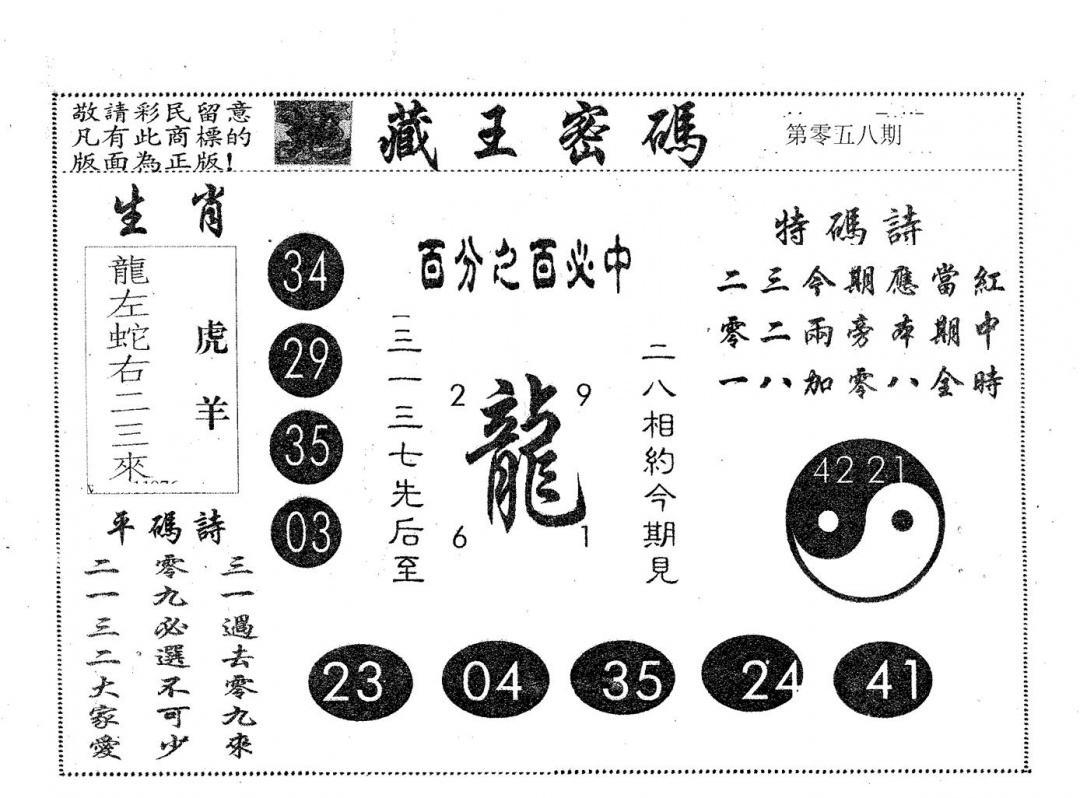 敬請彩民留意
凡有此商標的
版面為正版!
地藏王密碼
第零五八期
生肖
龍左蛇右二三來
虎羊
34
29
35
03
百分之百必中
三一三七先后至
2
9
龍
6
1
二八相約今期見
特碼詩
二三今期應當紅
零二兩旁本期中
一八加零八全時
42 21
平碼詩
三一過去零九來
零九必選不可少
二一三二大家愛
23
04
35
24
41